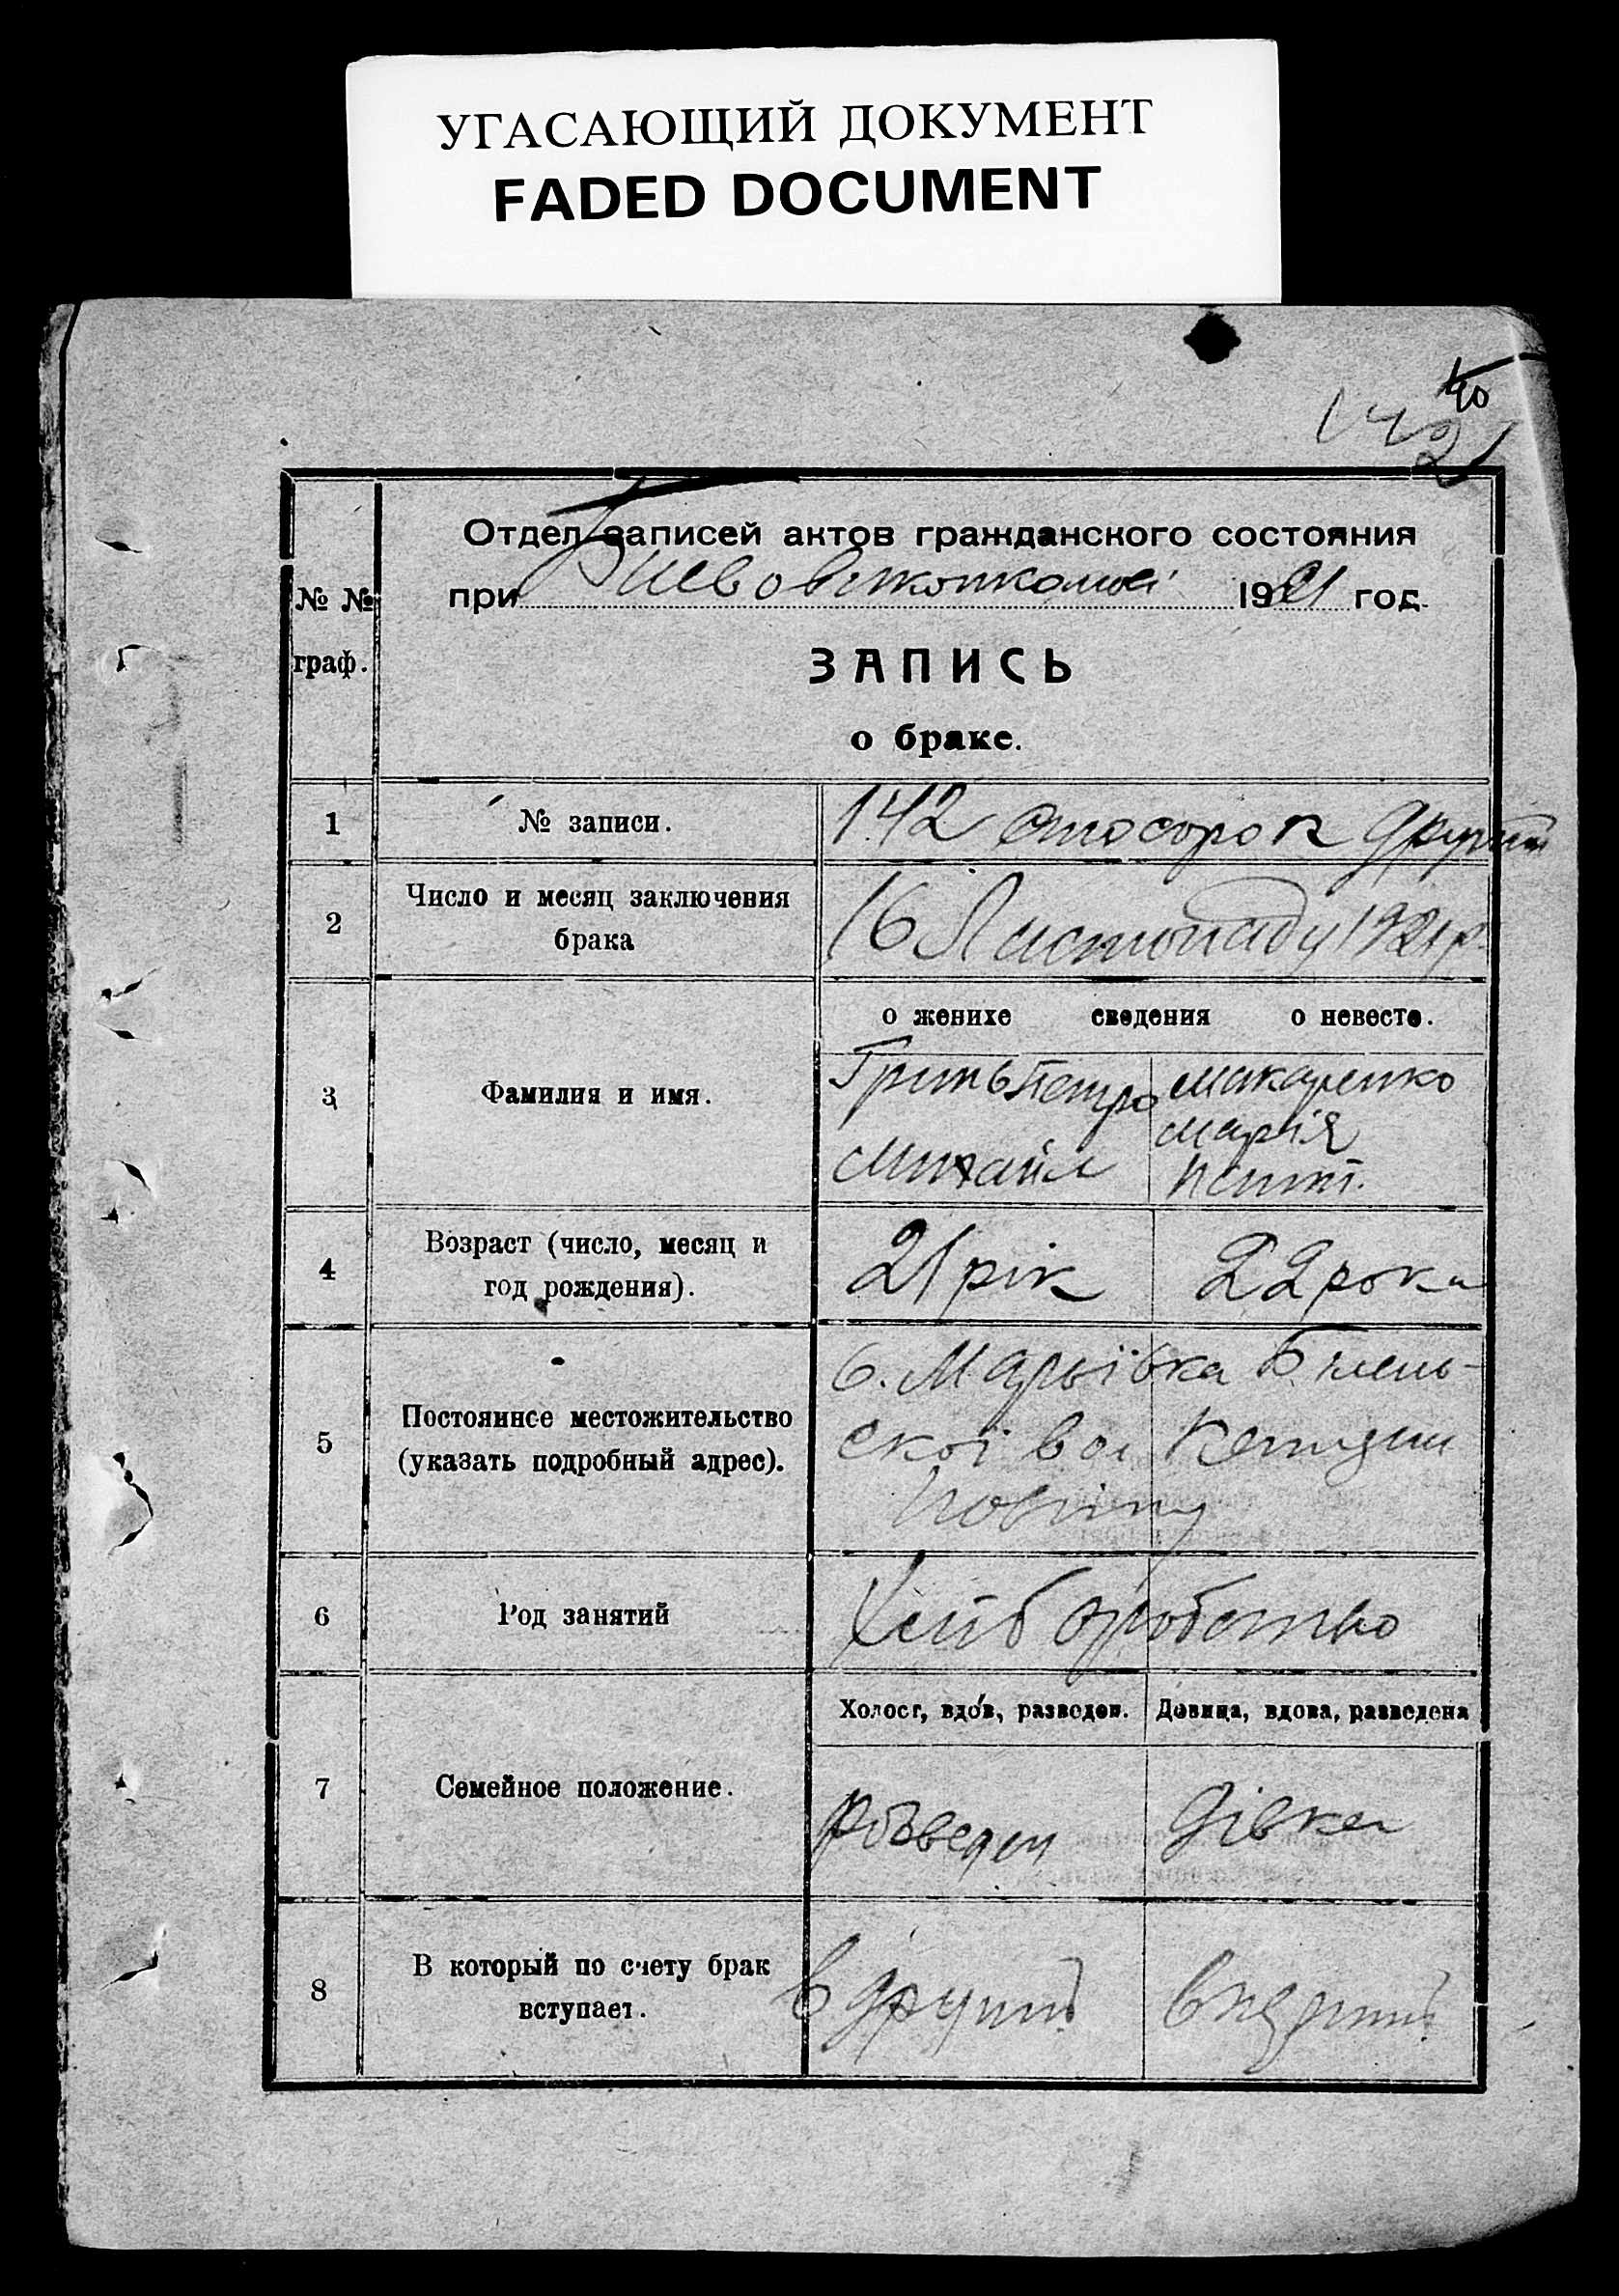 УГАСАЮЩИЙ ДОКУМЕНТ
FADED DOCUMENT
142
21
Отдел записей актов гражданского состояния
при 1921 год.
№ №
граф.
ЗАПИСЬ
о браке.
1 № записи. 142 сто сорок другий
2 Число и месяц заключения
брака
16 Листопаду 1921 р.
о женихе сведения о невесте.
3 Фамилия и имя.
Гринь Петро Макаренко
Марія
Михайл
4 Возраст (число, месяц и
год рождения).
21 рік 22 рока
5 Постоянное местожительство
(указать подробный адрес).
с. Марьівка Білень-
скоі вол
повіту
6 Род занятий Хлібо робство
Холост, вдов, разведен. Девица, вдова, разведена
7 Семейное положение.
розведен дівка
8 В который по счету брак
вступает.
в другий в первий